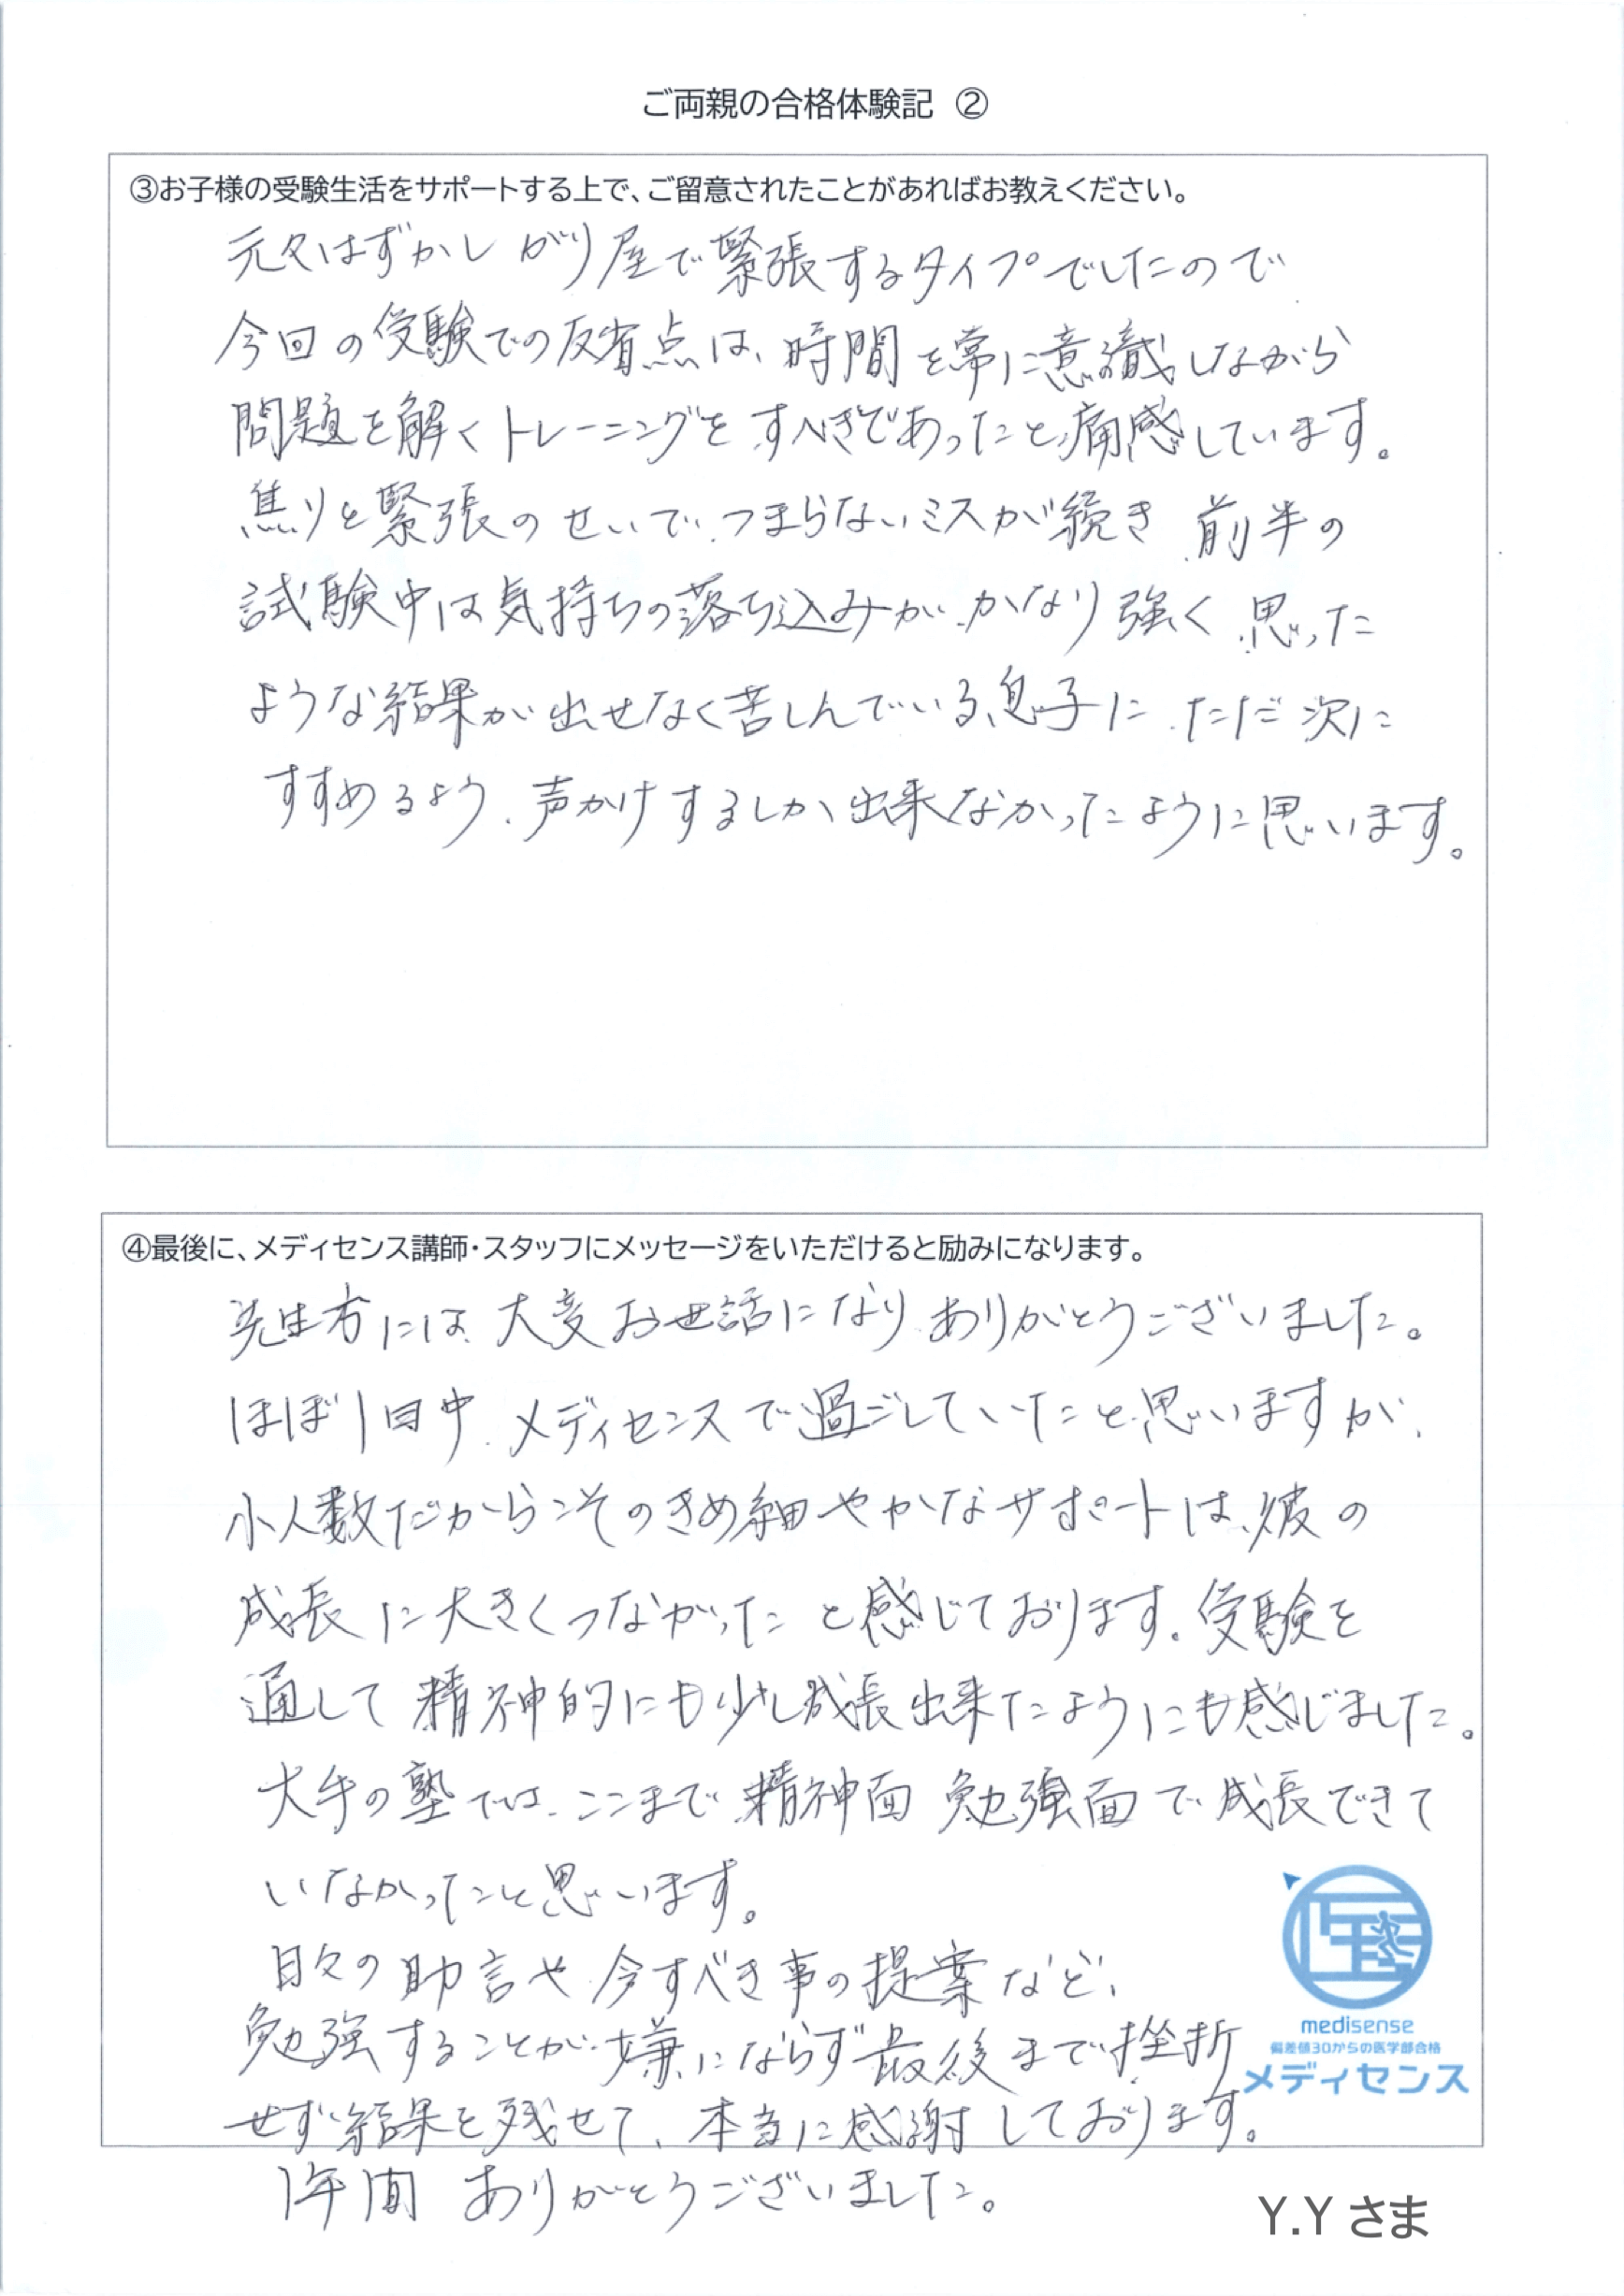 ご両親の合格体験記 ②
③お子様の受験生活をサポートする上で、ご留意されたことがあればお教えください。
元々はずかしがり屋で緊張するタイプでしたので
今回の受験での反省点は、時間を常に意識しながら
問題を解くトレーニングをすべきであったと痛感しています。
焦りと緊張のせいで、つまらないミスが続き 前半の
試験中は気持ちの落ち込みが、かなり強く、思った
ような結果が出せなく苦しんでいる息子に、ただ次に
すすめるよう、声かけするしか出来なかったように思います。
④最後に、メディセンス講師・スタッフにメッセージをいただけると励みになります。
先生方には、大変お世話になり、ありがとうございました。
ほぼ1日中、メディセンスで過ごしていたと思いますが、
小人数だからこそのきめ細やかなサポートは、彼の
成長に大きくつながったと感じております。受験を
通して精神的にも少し成長出来たようにも感じました。
大手の塾では、ここまで精神面 勉強面で、成長できて
いなかったと思います。
日々の助言や今すべき事の提案など、
勉強することが嫌にならず最後まで挫折
せず結果を残せて、本当に感謝しております。
1年間 ありがとうございました。
医
medisense
偏差値30からの医学部合格
メディセンス
Y.Y さま